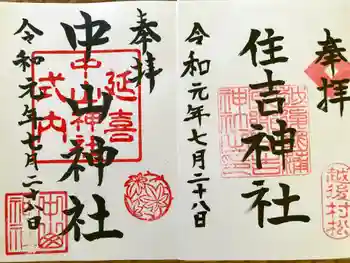 奉拝
住吉神社
令和元年七月二十八日
越後村松
奉拝
中山神社
令和元年七月二八日
延喜
式内
中山神社